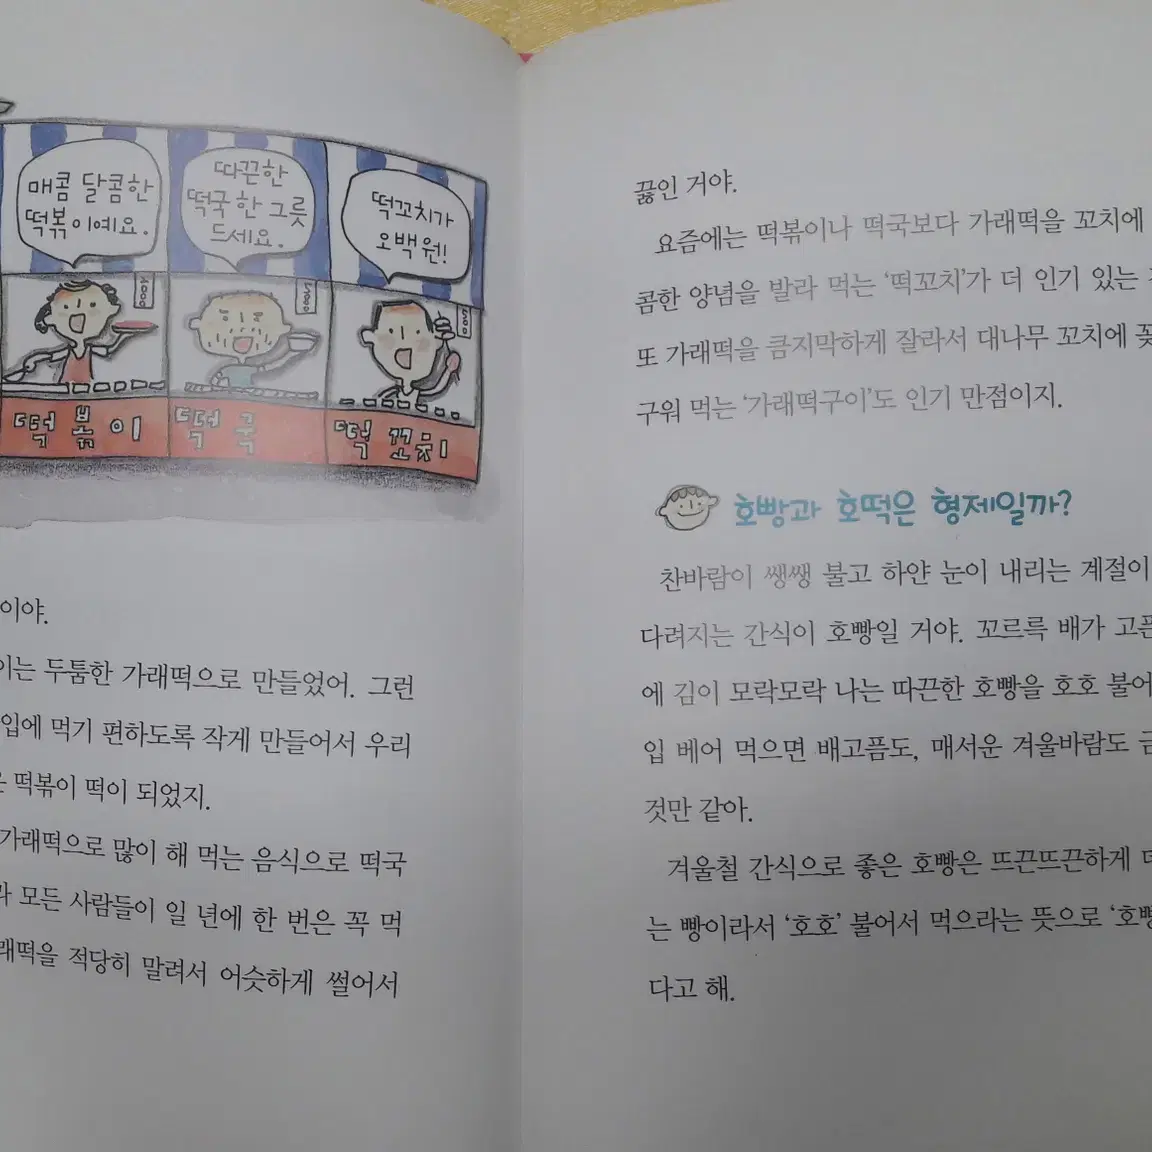 매콤 달콤한
떡볶이예요.
따끈한
떡국 한 그릇
드세요.
떡꼬치가
오백 원!
떡볶이
떡국
떡꼬치
이야.
두툼한 가래떡으로 만들었어. 그런
입에 먹기 편하도록 작게 만들어서 우리
떡볶이 떡이 되었지.
가래떡으로 많이 해 먹는 음식으로 떡국
모든 사람들이 일 년에 한 번은 꼭 먹
래떡을 적당히 말려서 어슷하게 썰어서
끓인 거야.
요즘에는 떡볶이나 떡국보다 가래떡을 꼬치에
콤한 양념을 발라 먹는 ‘떡꼬치’가 더 인기 있는
또 가래떡을 큼지막하게 잘라서 대나무 꼬치에
구워 먹는 ‘가래떡구이’도 인기 만점이지.
호빵과 호떡은 형제일까?
찬바람이 쌩쌩 불고 하얀 눈이 내리는 계절이
다려지는 간식이 호빵일 거야. 꼬르륵 배가 고픈
에 김이 모락모락 나는 따끈한 호빵을 호호 불어
입 베어 먹으면 배고픔도, 매서운 겨울바람도
것만 같아.
겨울철 간식으로 좋은 호빵은 뜨끈뜨끈하게
는 빵이라서 ‘호호’ 불어서 먹으라는 뜻으로 ‘호빵
다고 해.